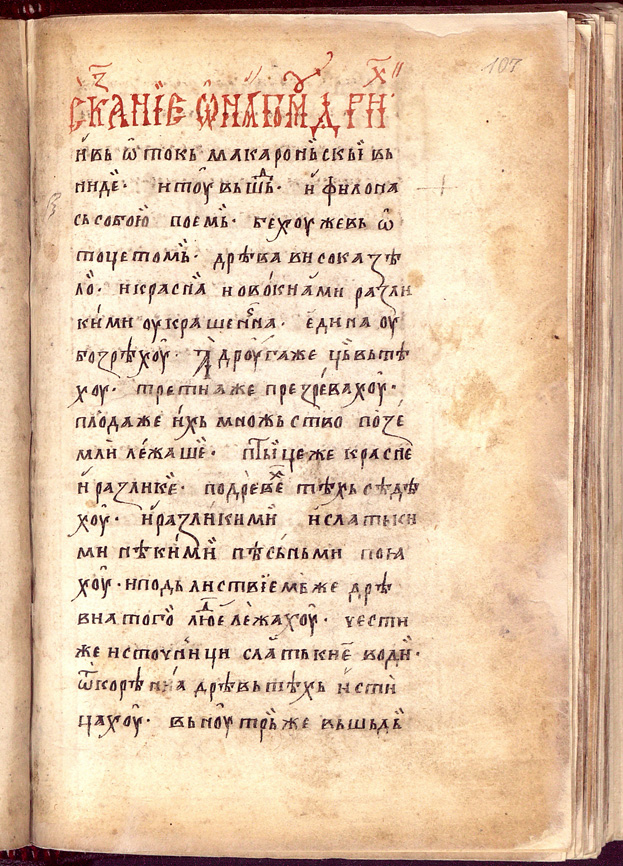 107
н въ ѿтокь макароньскыи въ
ниде· и тоу выше· и филона
сь собою поемь· бехоу же вь ѿ
тоце томь· дрѣва висока ѕѣ
ло· и красна и овокиами разли
кими оукрашенна· едина оу
бо зрѣхоу· а дроугаже цвьтѣ
хоу· третиаже презрѣвахоу·
плодаже ихь множьство по зе
мли лежаше· птыцеже красне
и разлике· по древехь тѣхь сѣдѣ
хоу· и разликими и слаткы
ми нѣкими пѣсьньми поꙗ
хоу· и подь листвїемьже дрѣ
вна того людїе лежахоу· чести
же источници сласткые води·
ѿ корѣниа дрѣвь тѣхь исти
цахоу· вь ноутрьже вьшьдь